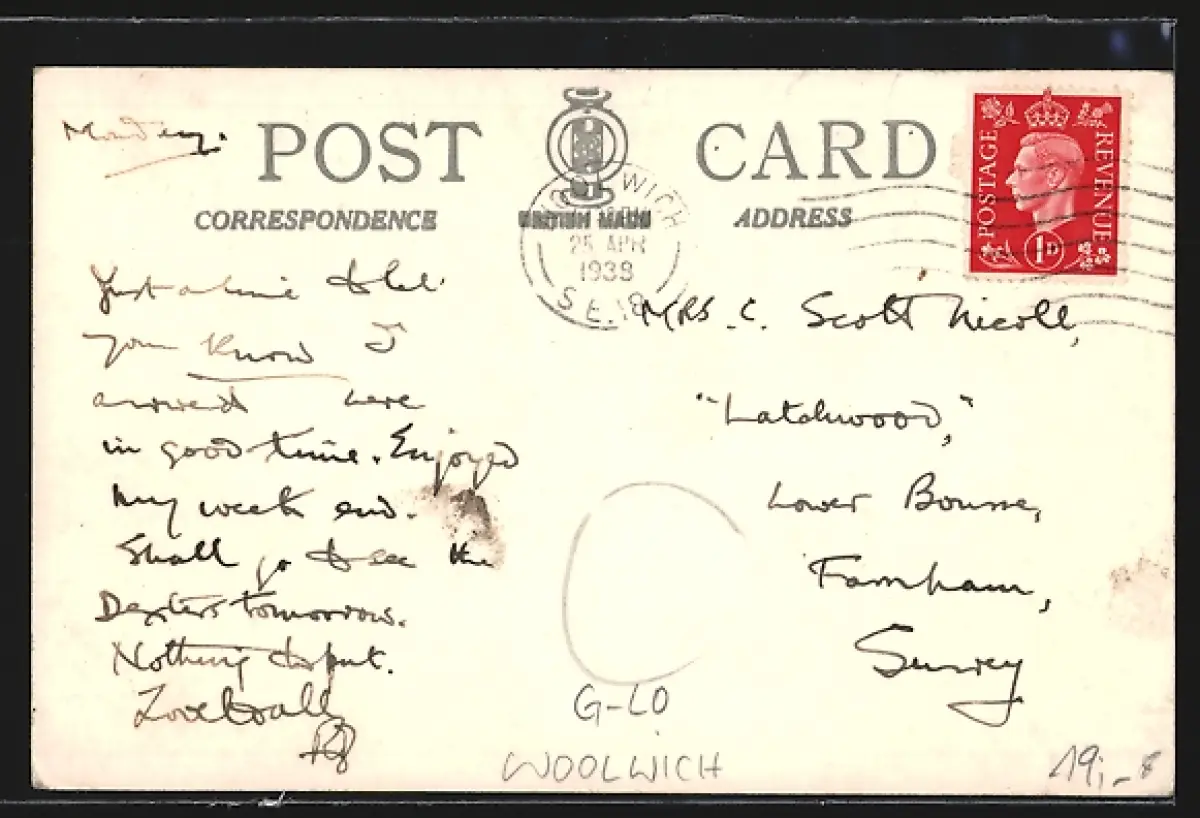 Monday.
POST CARD
CORRESPONDENCE
BRITISH MADE
ADDRESS
POSTAGE
REVENUE
1D
WOOLWICH
25 APR
1938
S.E.18
Just a line to let
you know I
arrived here
in good time. Enjoyed
my week end.
Shall go to see the
Dexters tomorrow.
Nothing to
Love to all
Mrs. C. Scott Nicoll,
"Latchwood,"
Lower Bourne,
Farnham,
Surrey
G-LO
WOOLWICH
19,-